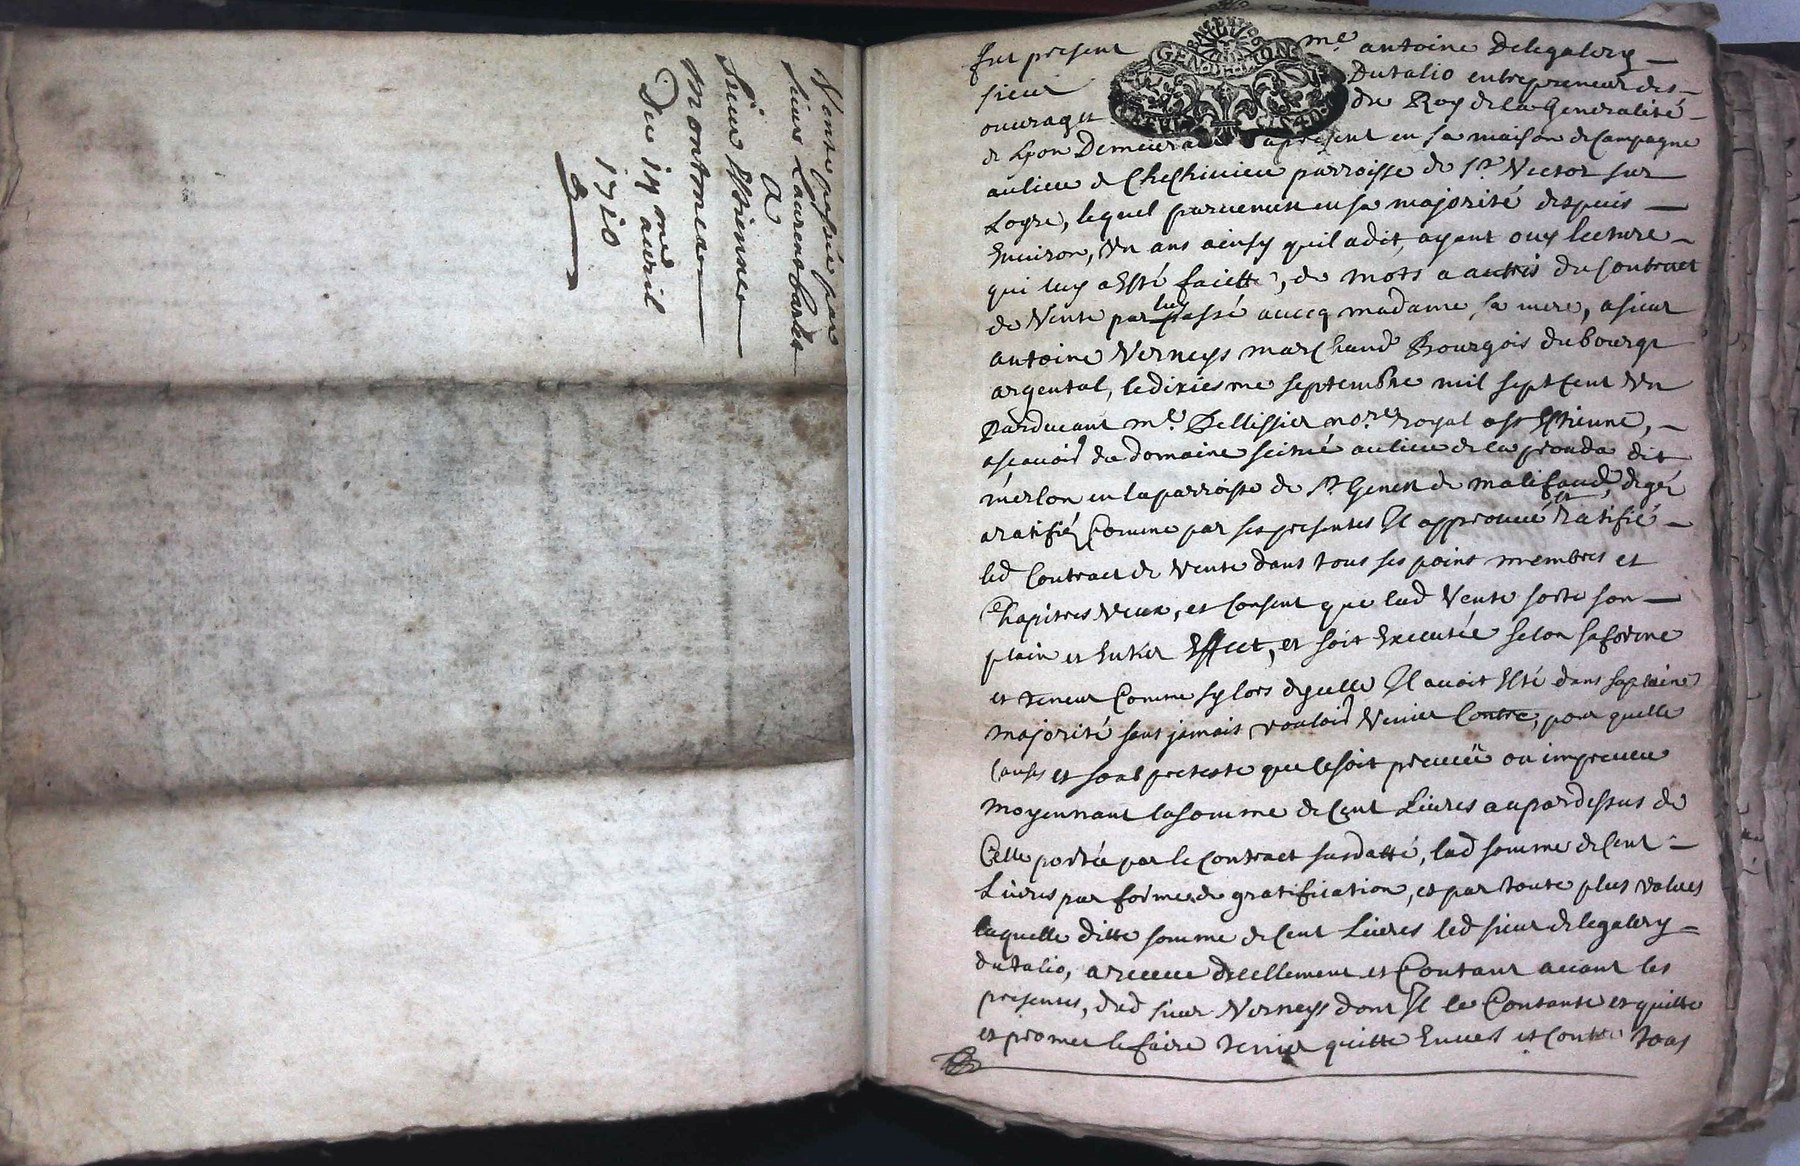 Vente passée par
sieur Laurent bardet
A
sieur Estienne
Montmean
Du 19me avril
1710
GEN·DE·LYON
fut present me antoine Delegalery
sieur Dutalio entrepreneur des
ouvrages du Roy de la Generalité
de Lyon Demeurant apresent en sa maison de Campagne
au lieu de Chechivieu parroisse de st Victor sur
Loyre, lequel parvenu en sa majorité depuis
Environ, un ans ainsy quil a dit, ayant ouy lecture
qui luy a Esté faitte, de mots a autres du Contract
de Vente par luy passé avecq madame sa mere, a sieur
antoine Verneys marchand Bourgois du bourgt
argental, le dixiesme septembre mil sept Cent un
Pardevant me. Pellissier nore royal a st Estienne,
asçavoir du domaine scitué au lieu de la fronda dit
merlon en la parroisse de st Genest de malifaud, de gré
a ratifié Comme par ses presentes Il approuvé et Ratifié
led Contract de Vente dans tous ses points membres et
Chapitres Veux, et Consent que lad Vente sorte son
plain et Entier Effect, et soit Executée selon sa forme
et teneur Comme sy lors dycelle Il avoit Esté dans sa plaine
majorité sans jamais vouloir Venir Contre, pour quelle
Causes et soub preteste que ce soit preveü ou impreveu
moyennant la somme de Cent Livres au pardessus de
Celle portée par le Contract susdatté, lad somme de Cent
Livres par forme de gratification, et par toute plus values
laquelle ditte somme de Cent Livres led sieur delegalery
dutalio, a receue reellement et Contant avant les
presentes, dud sieur Verneys dont Il le Contante et quitte
et promet le faire tenir quitte Envers et Contre tous